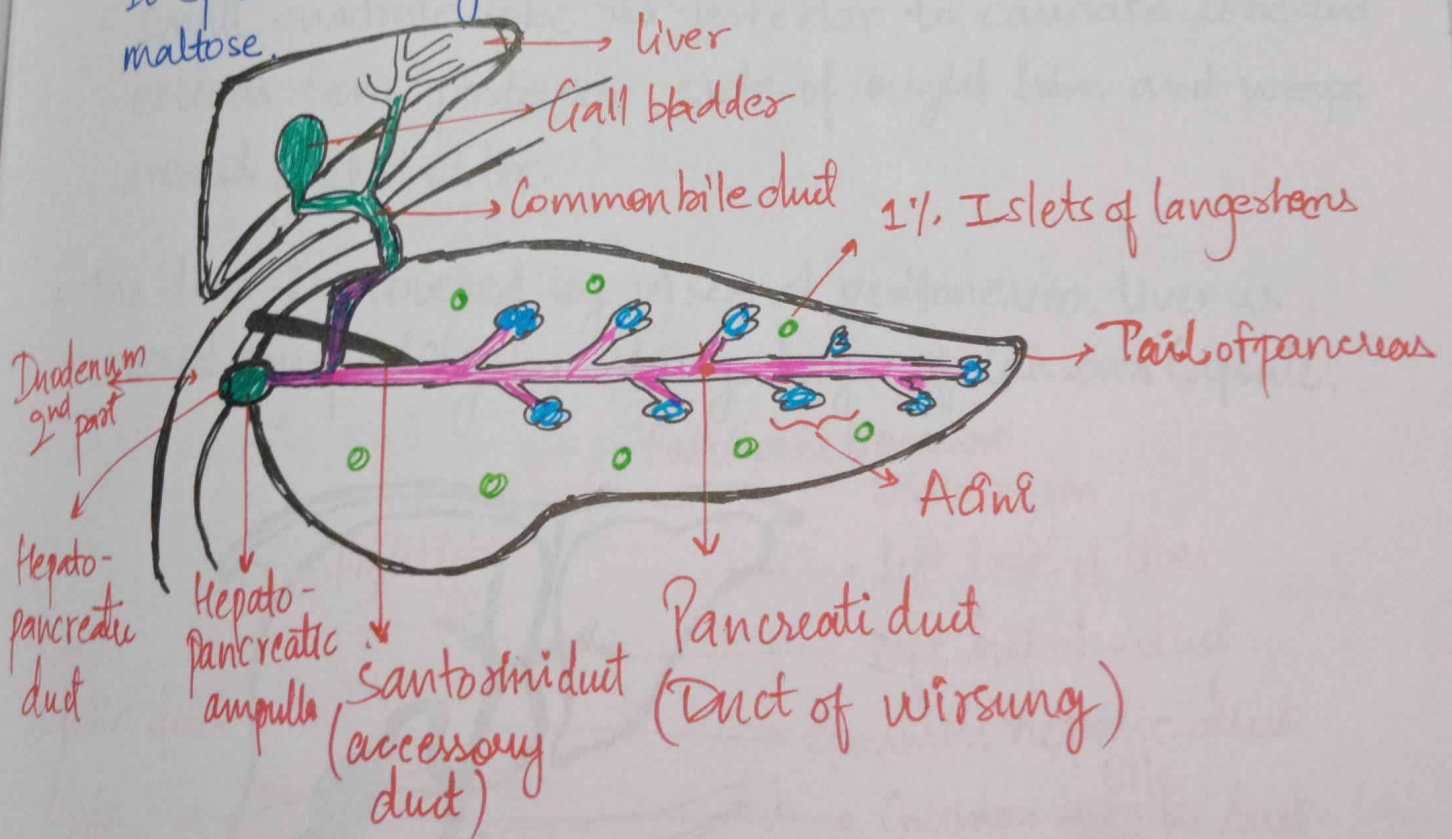 maltose.
liver
Gall bladder
Common bile duct
1%. Islets of langershens
Tail of pancreas
Duodenum
2nd part
Acini
Hepato-
pancreatic
duct
Hepato-
Pancreatic
ampulla
Santorini duct
(accessory
duct)
Pancreati duct
(Duct of wirsung)